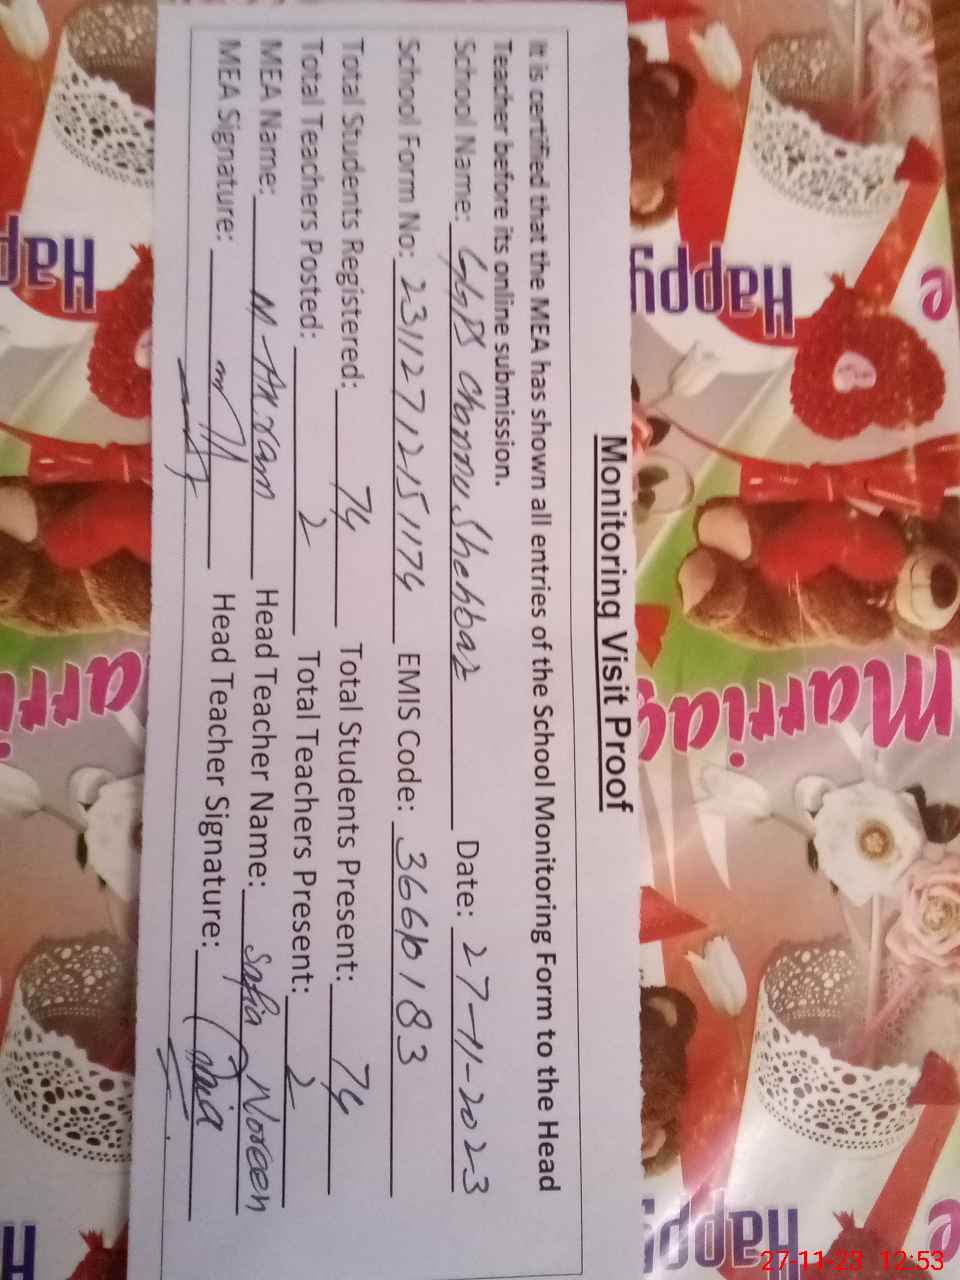 Monitoring Visit Proof
It is certified that the MEA has shown all entries of the School Monitoring Form to the Head
Teacher before its online submission.
School Name: GGPS Chonnu Shehbaz Date: 27-11-2023
School Form No: 23112712151174 EMIS Code: 36610183
Total Students Registered: 74 Total Students Present: 74
Total Teachers Posted: 2 Total Teachers Present: 2
MEA Name: M-Akram Head Teacher Name: Safia Noreen
MEA Signature: Head Teacher Signature:
Happy
Happy
Marriage
Happy
27-11-23 12:53